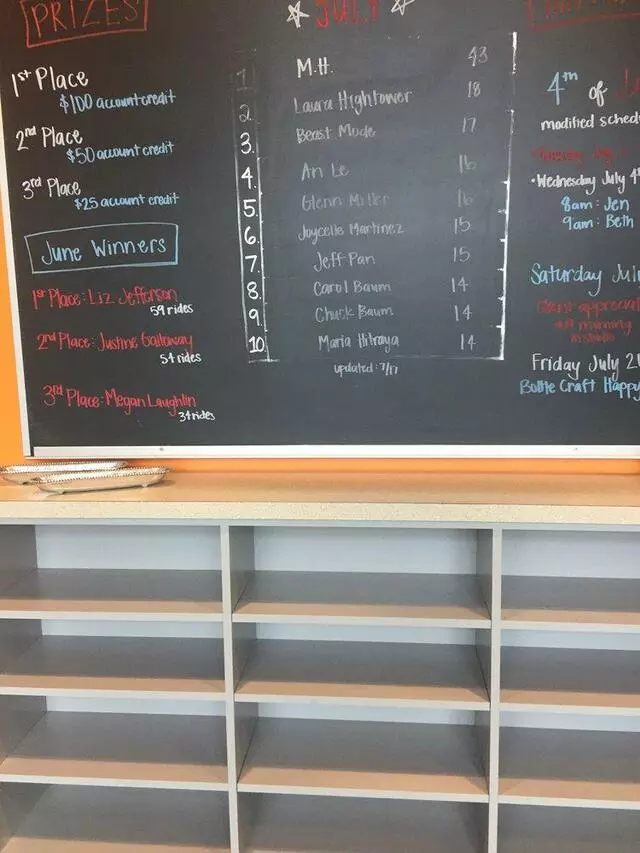 PRIZES
1st Place
$100 account credit
2nd Place
$50 account credit
3rd Place
$25 account credit
June Winners
1st Place: Liz Jefferson
59 rides
2nd Place: Justine Galloway
54 rides
3rd Place: Megan Laughlin
34 rides
JULY
1. M.H. 43
2. Laura Hightower 18
3. Beast Mode 17
4. An Le 16
5. Glenn Miller 16
6. Jaycelle Martinez 15
7. Jeff Pan 15
8. Carol Baum 14
9. Chuck Baum 14
10. Maria Hitraya 14
updated: 7/17
4th of
modified
• Wednesday July
8am: Jen
9am: Beth
Saturday
all morning
Friday July
Bottle Craft